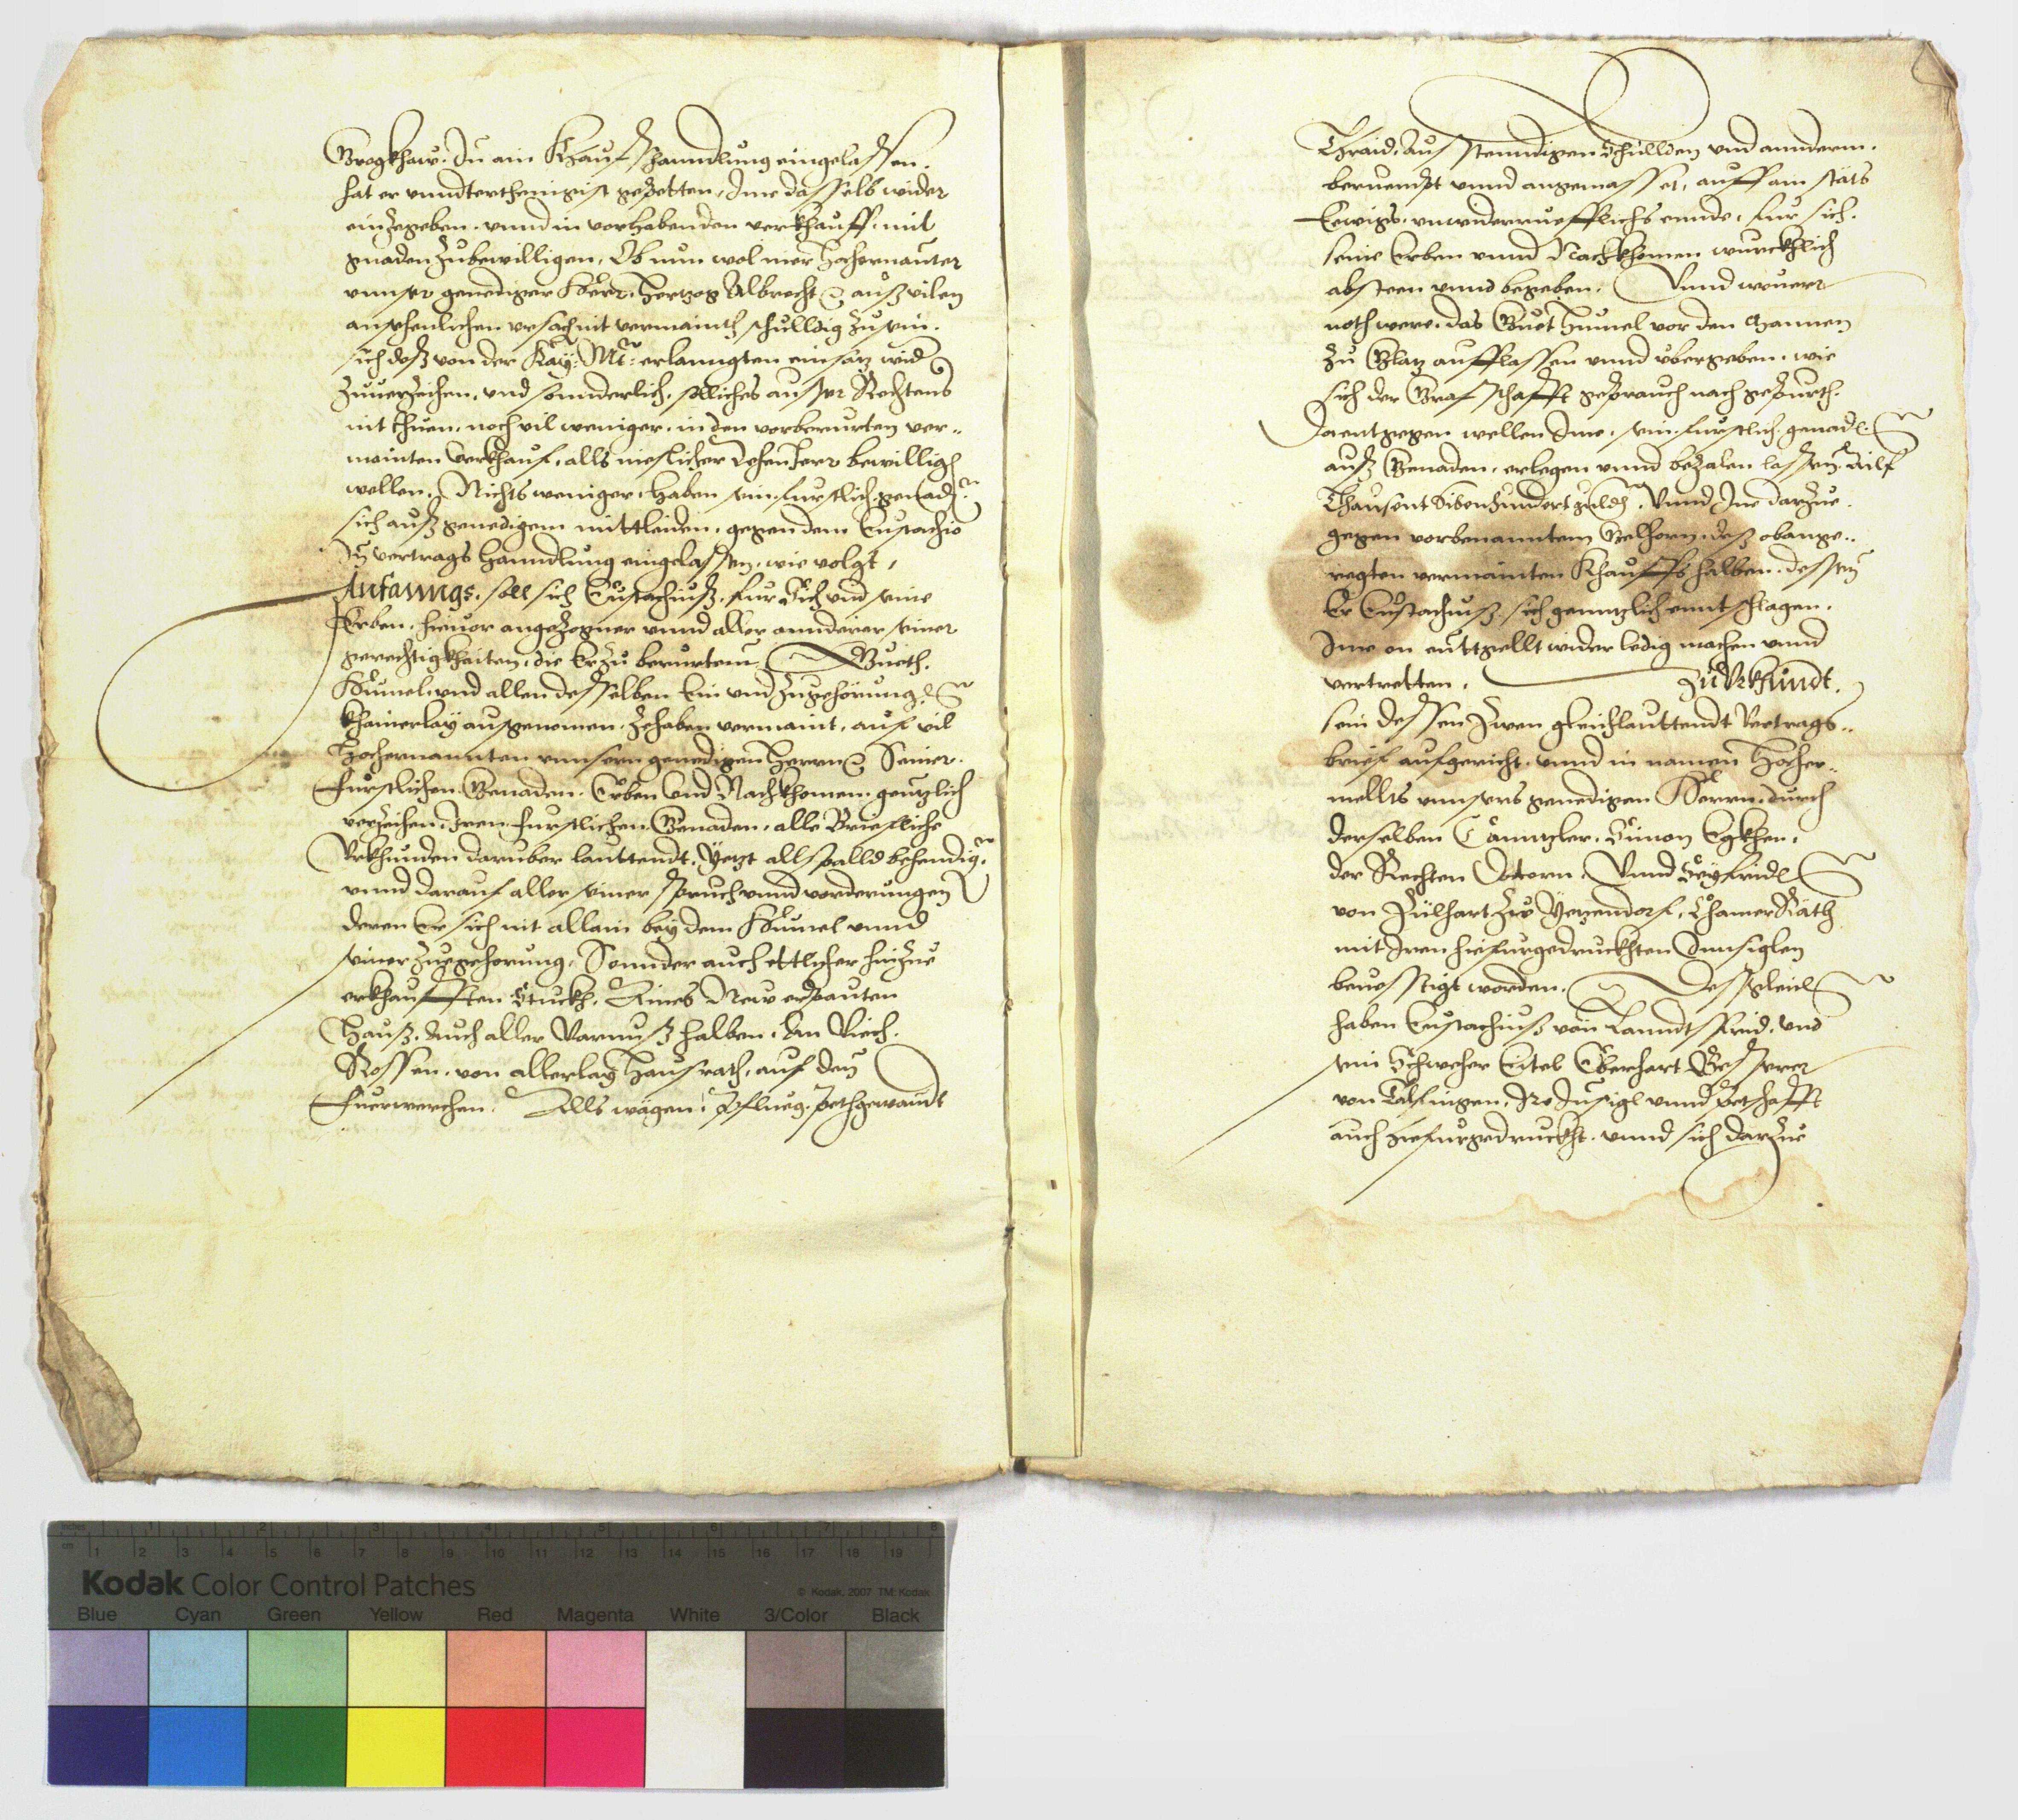 Brogkhaw. In ain Khaufshanndlung eingelassen.
hat er unndterthenigist gepetten, Ime dasselb wider
einzegeben. unnd in vorhabenden verkhauff. mit
gnaden zubewilligen. Ob nun wol mer hochernanter
unnser genediger Herr. Hertzog Albrecht auß vilen
ansehenlichen ursach nit vermaint schulldig zu sein.
sich deß von der Kay: Mt: erlanngten einsatz wid
zuuerzeihen. und sonnderlich. solliches ausser Rechtens
nit thuen. noch vil weniger. in den vorberurten ver-
mainten verkhauf. alls nießlicher Lehenherr bewillig
wellen. Nichts weniger. haben sein furstlich genad
sich auß genedigem mittleiden. gegen dem Eustachio
In vertrags hanndlung eingelassen. wie volgt.
Anfanngs. soll sich Eustachiuß. fur Sich und seine
Erben. hieuor angezogner unnd aller annderer seiner
gerechtigkhaiten. die Er zu berurtem Gueth.
Humel. und allen desselben Ein und zugehörung
khainerlay ausgenomen. zehaben vermaint. auf vil
Hochernannten unnsern genedigen Herrn Seiner.
Furstlichen Genaden. Erben und Nachkhomen. gentzlich
verzeihen. Iren Furstlichen Genaden. alle Briefliche
Urkhunden daruber lauttendt. Yetzt allspalld behendig.
unnd darauf aller seiner spruch unnd vorderungen
deren Er sich nit allain bey dem Humel unnd
seiner zuegehorung. Sonnder auch ettlicher hinzue
erkhaufften Stuckh. Aines New erpauten
Hauß. Auch aller Varnuß halben. An Viech.
Rossen. von allerlay Hausrath. auf den
Fuerwerchen. Alls wägen. Pflueg. Pethgewandt
Thraid. Ausstenndigen Schullden und annderm.
beruembt unnd angemasset. auff ain stäts
Eewigs. unwiderruefflichs ennde. fur sich.
seine Erben unnd Nachkhomen wurckhlich
absteen unnd begeben. Unnd wouerr
noth were. das Guet Humel vor den Mannen
zu Glatz aufflassen unnd übergeben. wie
sich der Grafschafft geprauch nach gepurth.
Daentgegen wellen Ime. sein furstlich genad.
auß Genaden. erlegen unnd bezalen lassen. Ailf
Thausent Sibenhundert guld. Unnd Ine darzue.
gegen vorbenanntem Gelhorn. deß obange-
regten vermainten Khauffs halben. dessen
Er Eustachiuß sich genntzlich ennt schlagen.
Ine on enttgellt wider ledig machen unnd
vertretten. Zu Urkhundt.
sein dessen zwen gleichlauttendt Vertrags-
brief aufgericht. unnd in namen Hocher-
mellts unnsers genedigen Herrn. durch
derselben Canntzler. Simon Egkhen.
der Rechten Doctorn. Unnd Seyfrid
von Zulhart zu Yetzendorf. Chamer Räth
mit Iren hiefurgedruckhten Innsiglen
beuesstigt worden. Dessgleich
haben Eustachiuß von Lanndtsfrid. und
sein Schweher Eitel Eberhart Besserer
von Talfingen. Ire Insigl unnd Petschafft
auch hiefurgedruckht. unnd sich darzue
inches 1 2 3 4 5 6 7 8
cm 1 2 3 4 5 6 7 8 9 10 11 12 13 14 15 16 17 18 19
Kodak Color Control Patches © Kodak, 2007 TM: Kodak
Blue Cyan Green Yellow Red Magenta White 3/Color Black